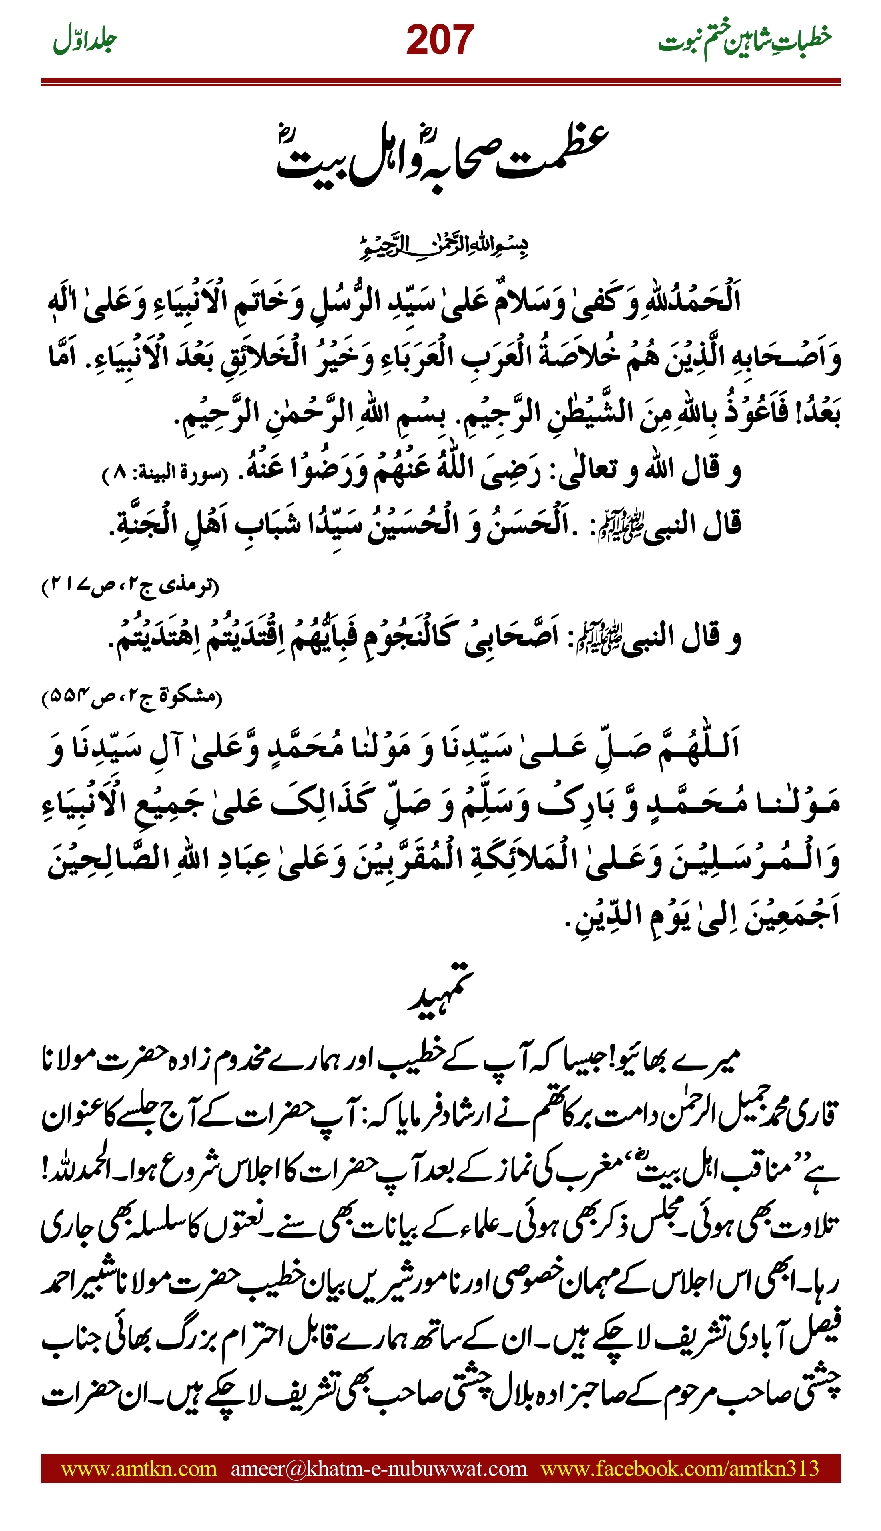 خطباتِ شاہین ختم نبوت 207 جلد اوّل
عظمت صحابہؓ و اہل بیتؓ
بِسْمِ اللهِ الرَّحْمٰنِ الرَّحِيْمِ
اَلْحَمْدُلِلّٰهِ وَكَفىٰ وَسَلامٌ عَلىٰ سَيِّدِ الرُّسُلِ وَخَاتَمِ الْاَنْبِيَاءِ وَعَلىٰ اٰلَهٖ
وَاَصْحَابِهِ الَّذِيْنَ هُمْ خُلاَصَةُ الْعَرَبِ الْعَرَبَاءِ وَخَيْرُ الْخَلائِقِ بَعْدَ الْاَنْبِيَاءِ. اَمَّا
بَعْدُ! فَاَعُوْذُ بِاللهِ مِنَ الشَّيْطٰنِ الرَّجِيْمِ. بِسْمِ اللهِ الرَّحْمٰنِ الرَّحِيْمِ.
و قال الله و تعالٰى: رَضِىَ اللّٰهُ عَنْهُمْ وَرَضُوْا عَنْهُ. (سورة البينة: ۸)
قال النبى ﷺ: .اَلْحَسَنُ وَ الْحُسَيْنُ سَيِّدُا شَبَابِ اَهْلِ الْجَنَّةِ.
(ترمذی ج۲، ص۲۱۷)
و قال النبى ﷺ: اَصَّحَابِىْ كَالْنَجُوْمِ فَبِاَيُّهُمْ اِقْتَدَيْتُمْ اِهْتَدَيْتُمْ.
(مشکوۃ ج۲، ص۵۵۴)
اَللّٰهُمَّ صَلِّ عَلىٰ سَيِّدِنَا وَ مَوْلٰنا مُحَمَّدٍ وَّعَلىٰ آلِ سَيِّدِنَا وَ
مَوْلٰنا مُحَمَّدٍ وَّ بَارِکْ وَسَلِّمْ وَ صَلِّ كَذَالِکَ عَلىٰ جَمِيْعِ الْاَنْبِيَاءِ
وَالْمُرْسَلِيْنَ وَعَلىٰ الْمَلاَئِكَةِ الْمُقَرَّبِيْنَ وَعَلىٰ عِبَادِ اللهِ الصَّالِحِيْنَ
اَجْمَعِيْنَ اِلىٰ يَوْمِ الدِّيْنِ.
تمہید
میرے بھائیو! جیسا کہ آپ کے خطیب اور ہمارے مخدوم زادہ حضرت مولانا
قاری محمد جمیل الرحمٰن دامت برکاتھم نے ارشاد فرمایا کہ: آپ حضرات کے آج جلسے کا عنوان
ہے ’’مناقب اہل بیتؓ‘‘ مغرب کی نماز کے بعد آپ حضرات کا اجلاس شروع ہوا۔ الحمدللہ!
تلاوت بھی ہوئی۔ مجلس ذکر بھی ہوئی۔ علماء کے بیانات بھی سنے۔ نعتوں کا سلسلہ بھی جاری
رہا۔ ابھی اس اجلاس کے مہمان خصوصی اور نامور شیریں بیان خطیب حضرت مولانا شبیر احمد
فیصل آبادی تشریف لا چکے ہیں۔ ان کے ساتھ ہمارے قابل احترام بزرگ بھائی جناب
چشتی صاحب مرحوم کے صاحبزادہ بلال چشتی صاحب بھی تشریف لا چکے ہیں۔ ان حضرات
www.amtkn.com ameer@khatm-e-nubuwwat.com www.facebook.com/amtkn313